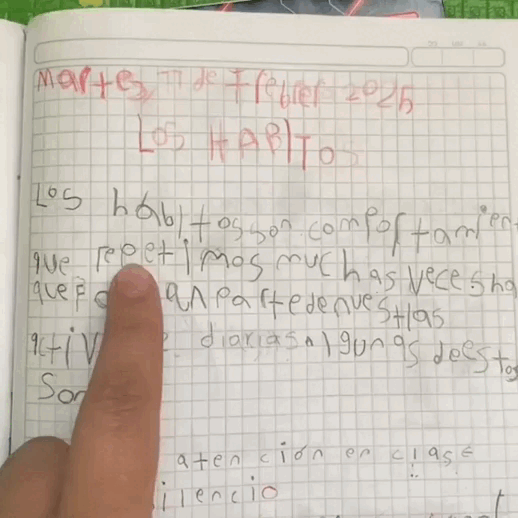 Martes 11 de Febrer 2025
Los HABITOS
Los hábitos son comportamien
que repetimos muchas veces ha
que an parte de nuestras
diarias algunas de estos
Son
atención en clase
ilencio